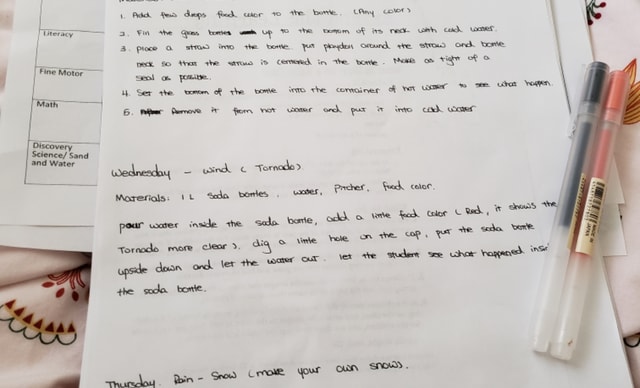 Literacy
Fine Motor
Math
Discovery
Science/ Sand
and Water
1. Add few drops food color to the bottle. (Any color)
2. Fill the glass bottles up to the bottom of its neck with cold water.
3. place a straw into the bottle. put playdoh around the straw and bottle
neck so that the straw is centered in the bottle. Make as tight of a
seal as possible.
4. Set the bottom of the bottle into the container of hot water to see what happen.
5. Remove it from hot water and put it into cold water
Wednesday - wind ( Tornado)
Materials: 1 L soda bottles, water, Pitcher, food color.
pour water inside the soda bottle, add a little food color ( Red, it shows the
Tornado more clear). dig a little hole on the cap, put the soda bottle
upside down and let the water out. let the student see what happened insi
the soda bottle.
Thursday. Rain - Snow (make your own snow).